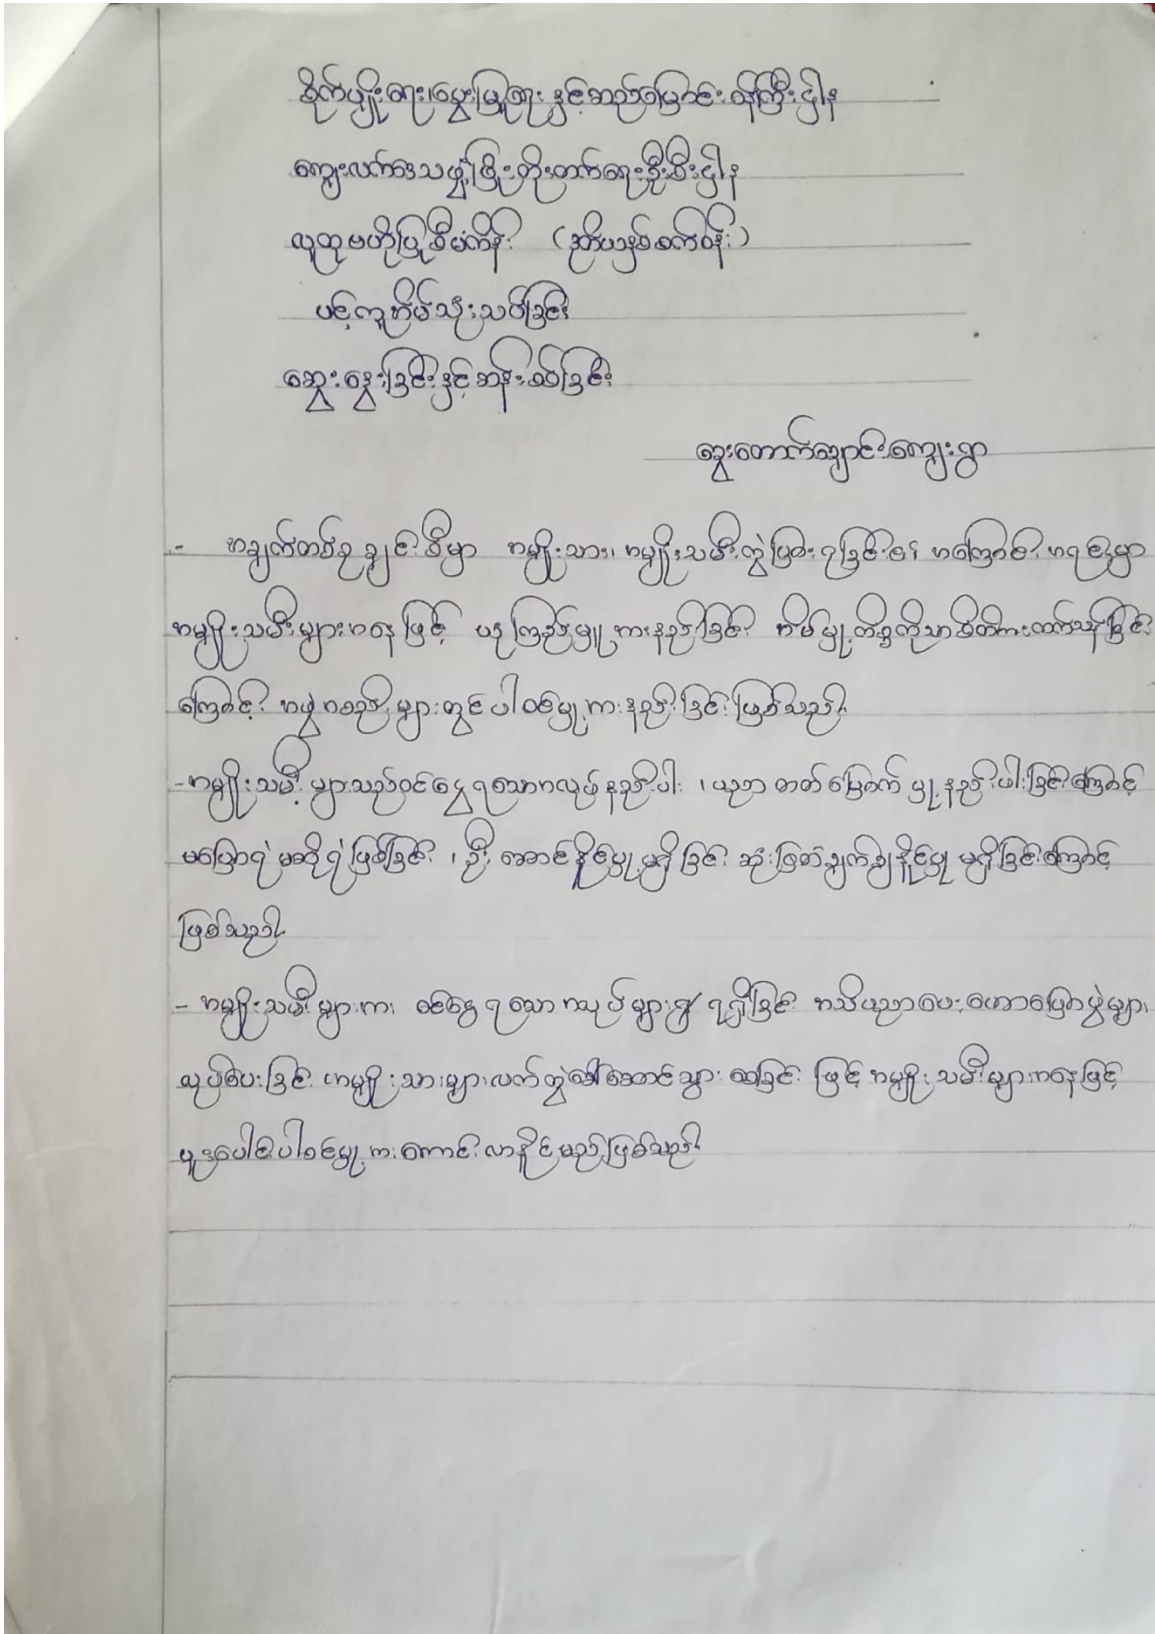 စိုက်ပျိုးရေး၊မွေးမြူရေးနှင့်ဆည်မြောင်းဝန်ကြီးဌါန
ကျေးလက်ဒေသဖွံ့ဖြိုးတိုးတက်ရေးဦးစီးဌါန
လူထုဗဟိုပြုစီမံကိန်း (ဒုတိယနှစ်စက်ဝန်း)
ပင့်ကူအိမ်သုံးသပ်ခြင်း
ဆွေးနွေးခြင်းနှင့်ဆန်းစစ်ခြင်း
ခွေးတောက်ချောင်းကျေးရွာ
- အချက်တစ်ခုချင်းစီမှာ အမျိုးသား၊အမျိုးသမီးကွဲပြားရခြင်း၏ အကြောင်းအရင်းမှာ
အမျိုးသမီးများအနေဖြင့် ယုံကြည်မှုအားနည်းခြင်း အိမ်မှုကိစ္စကိုသာစိတ်အားထက်သန်ခြင်း
ကြောင့် အဖွဲ့အစည်းများတွင်ပါဝင်မှုအားနည်းခြင်းဖြစ်သည်။
- အမျိုးသမီးများသည်ဝင်ငွေရသောအလုပ်နည်းပါး ၊ ပညာတတ်မြောက်မှုနည်းပါးခြင်းကြောင့်
မပြောရဲမဆိုရဲဖြစ်ခြင်း ၊ ဦးဆောင်နိုင်မှုမရှိခြင်း ဆုံးဖြတ်ချက်ချနိုင်မှုမရှိခြင်းကြောင့်
ဖြစ်သည်။
- အမျိုးသမီးများအား ဝင်ငွေရသောအလုပ်များ ရရှိခြင်း အသိပညာပေးဟောပြောပွဲများ
လုပ်ပေးခြင်း အမျိုးသားများလက်တွဲခေါ်ဆောင်သွားစေခြင်း ဖြင့် အမျိုးသမီးများအနေဖြင့်
ပူးပေါင်းပါဝင်မှုအားကောင်းလာနိုင်မည်ဖြစ်သည်။